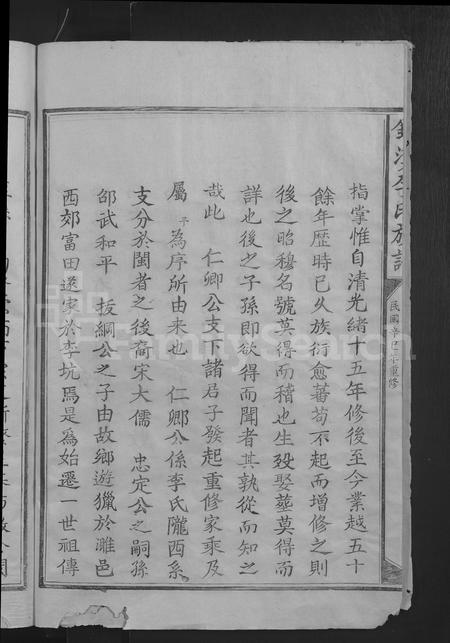 李氏族譜
民國辛巳年重修
指掌惟自清光緒十五年修後至今業越五十
餘年歷時已久族衍愈蕃苟不起而增修之則
後之昭穆名號莫得而稽也生歿娶塟莫得而
詳也後之子孫即欲得而聞者其孰從而知之
哉此 仁卿公支下諸君子發起重修家乘及
屬予為序所由来也 仁卿公係李氏隴西系
支分於閩者之後裔宋大儒 忠定公之嗣孫
邵武和平 拔綱公之子由故鄉遊獵於濉邑
西郊富田遂家於李坑焉是為始遷一世祖傳
FamilySearch